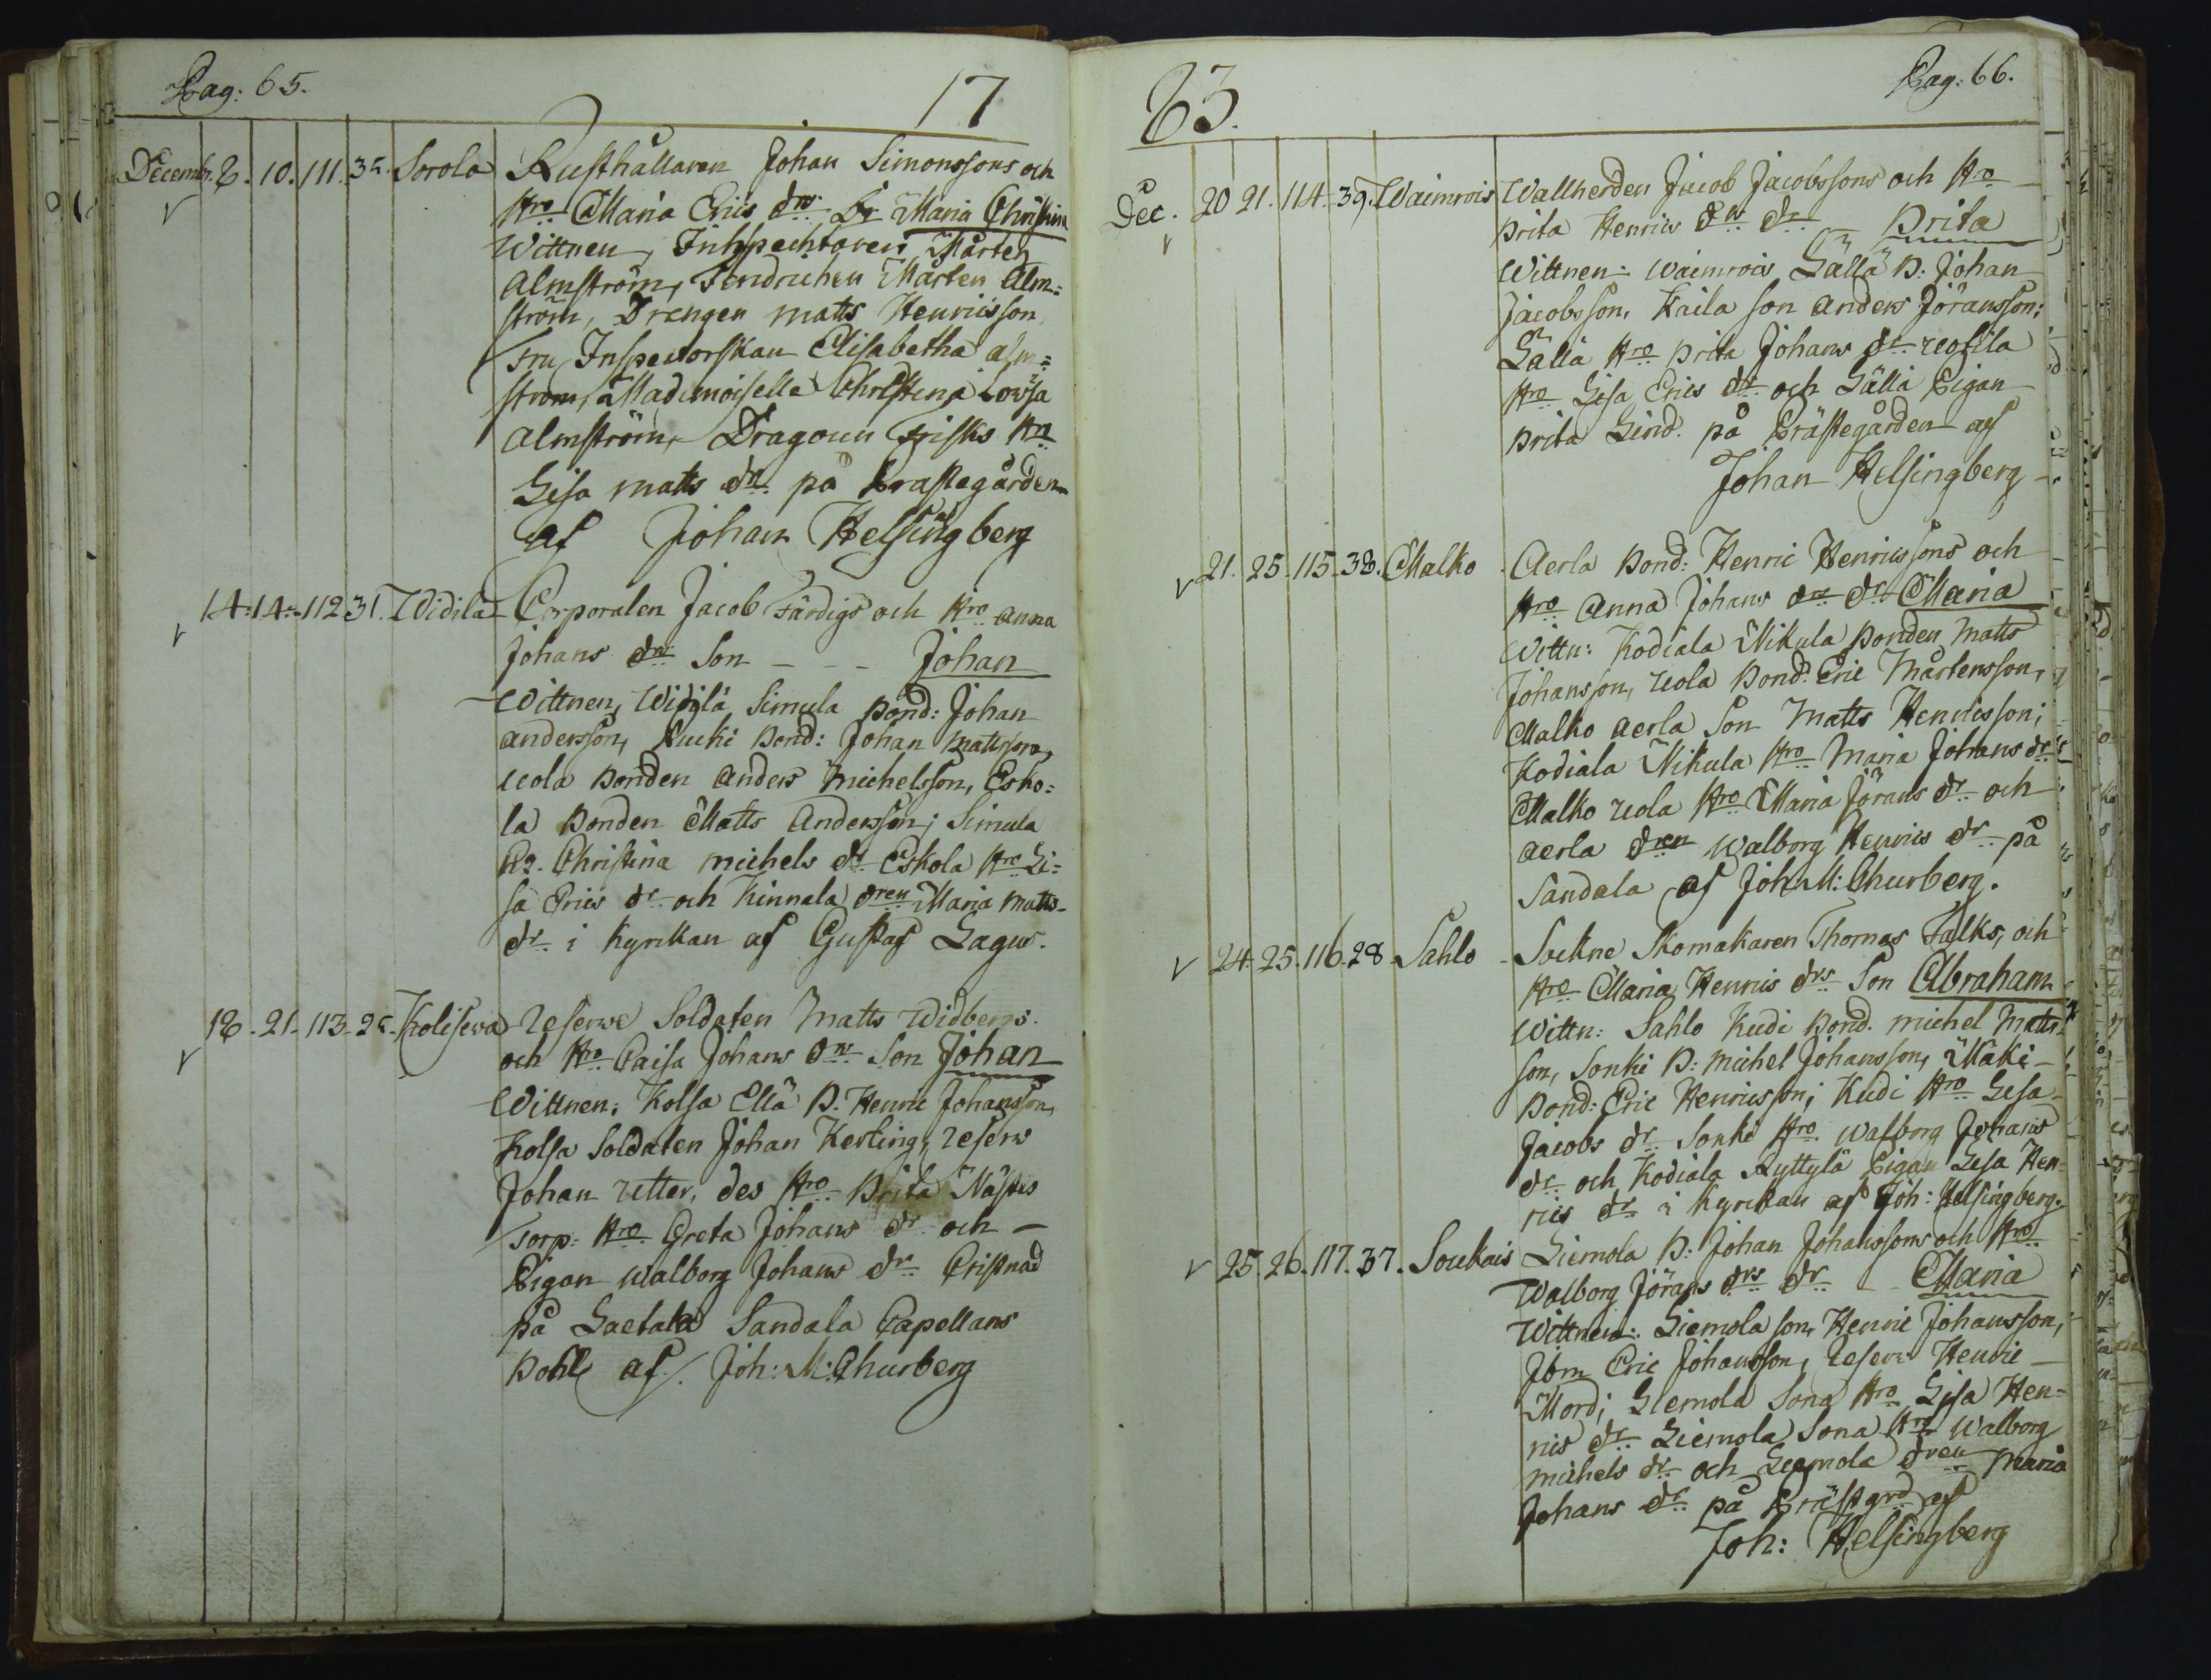 Pag: 65.
17
Decembr. 8. 10. 111. 35. Sorola Rusthållaren Johan Simonssons och
Hro Maria Erics drs Dr Maria Christina
Wittnen, Inhspechtoren Mårten
Almström, Fendrichen Mårten Alm=
ström, Drengen matts Henricsson
Fru Inspectorskan Elisabetha alm=
ström, Mademoiselle Christina Lovisa
Almström, Dragoun Frisks Hro
Lisa matts dr på Prästegården
af Johan Helsingberg
14. 14. 112 31. Widila Corporalen Jacob Färdigs och Hro Anna
Johans drs Son - - - Johan
Wittnen, Widila Simula Bond: Johan
andersson, Kucki Bond: Johan Mattsson,
Uola Bonden Anders Michelsson, Esko=
la Bonden Matts Andersson; Simula
Christina michels dr Eskola Hro Li=
sa Erics dr och Kinnala dren Maria Matts
dr i Kyrckan af Gustaf Lagus.
18. 21. 113. 25. Koliseva Reserve Soldaten Matts Widbergs
och Hro Caisa Johans drs Son Johan
Wittnen: Kolsa Ellä B. Henric Johansson,
Kolsa Soldaten Johan Kerling, Reserv
Johan Retter, des Hro Brita
Torp: Hro Greta Johans dr och
Pigan Walborg Johans dr Cristnad
på Laetala Sandala Capellans
Bohl af. Joh: M: Churberg
83.
Pag: 66.
Dec. 20 21. 114. 39. Waimrois Wallherden Jacob Jacobssons och Hro
Brita Henrics drs dr - Brita
Wittnen: Waimrois Lällä B: Johan
Jacobsson, Kaila son Anders Jöransson;
Lällä Hro Brita Johans dr
Hro Lisa Erics dr och Lällä Pigan
Brita Lind. på Prästegården af
Johan Helsingberg
21. 25. 115. 38. Malko Aerla Bond: Henric Henricssons och
Hro Anna Johans drs dr Maria
Wittn: Kodiala Nikula Bonden Matts
Johansson, Uola Bond. Eric Mårtensson,
Malko Aerla Son Matts Henricsson;
Kodiala Nikula Hro Maria Johans dr
Malko Uola Hro Maria Jörans dr och
Aerla dren Walborg Henrics dr på
Sandala af Joh: M: Churberg.
24. 25. 116. 28 Sahlo Sockne Skomakaren Thomas Falks, och
Hro Maria Henrics drs Son Abraham
Wittn: Sahlo Kudi Bond. michel Matts=
son, Sonki B: Michel Johansson, Mäki
Bond: Eric Henricsson; Kudi Hro Lisa
Jacobs dr Sonki Hro Walborg Johans
dr och Kodiala Ryttylä Pigan Lisa Hen=
rics dr i Kyrckan af Joh: Helsingberg.
25. 26. 117. 37. Soukais Liemola B: Johan Johanssons och Hro
Walborg Jörans drs dr - Maria
Wittnen: Liemola son, Henric Johansson,
Jörn Eric Johansson, Reserv Henric
Mord; Liemola Sona Hro Lisa Hen=
rics dr Liemola Sona Hro Walborg
michels dr och Liemola dren Maria
Johans dr på Prästgrd af
Joh: Helsingberg